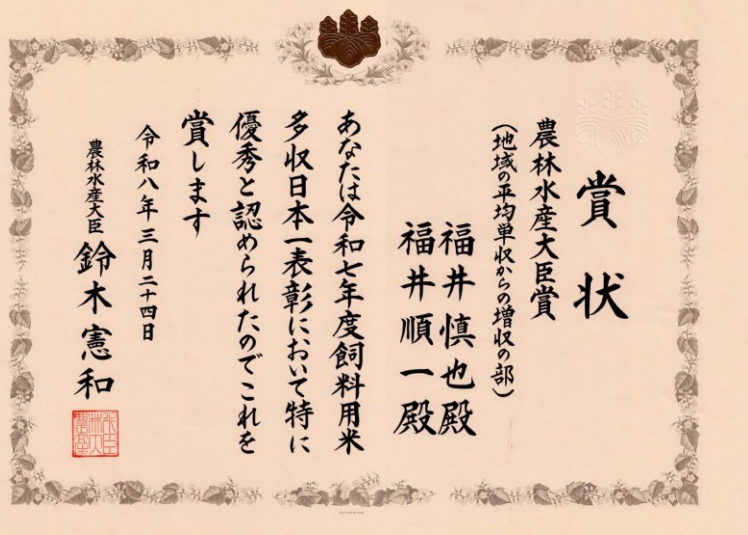 賞状
農林水産大臣賞
(地域の平均単収からの増収の部)
福井慎也殿
福井順一殿
あなたは令和七年度飼料用米
多収日本一表彰において特に
優秀と認められたのでこれを
賞します
令和八年三月二十四日
農林水産大臣 鈴木憲和